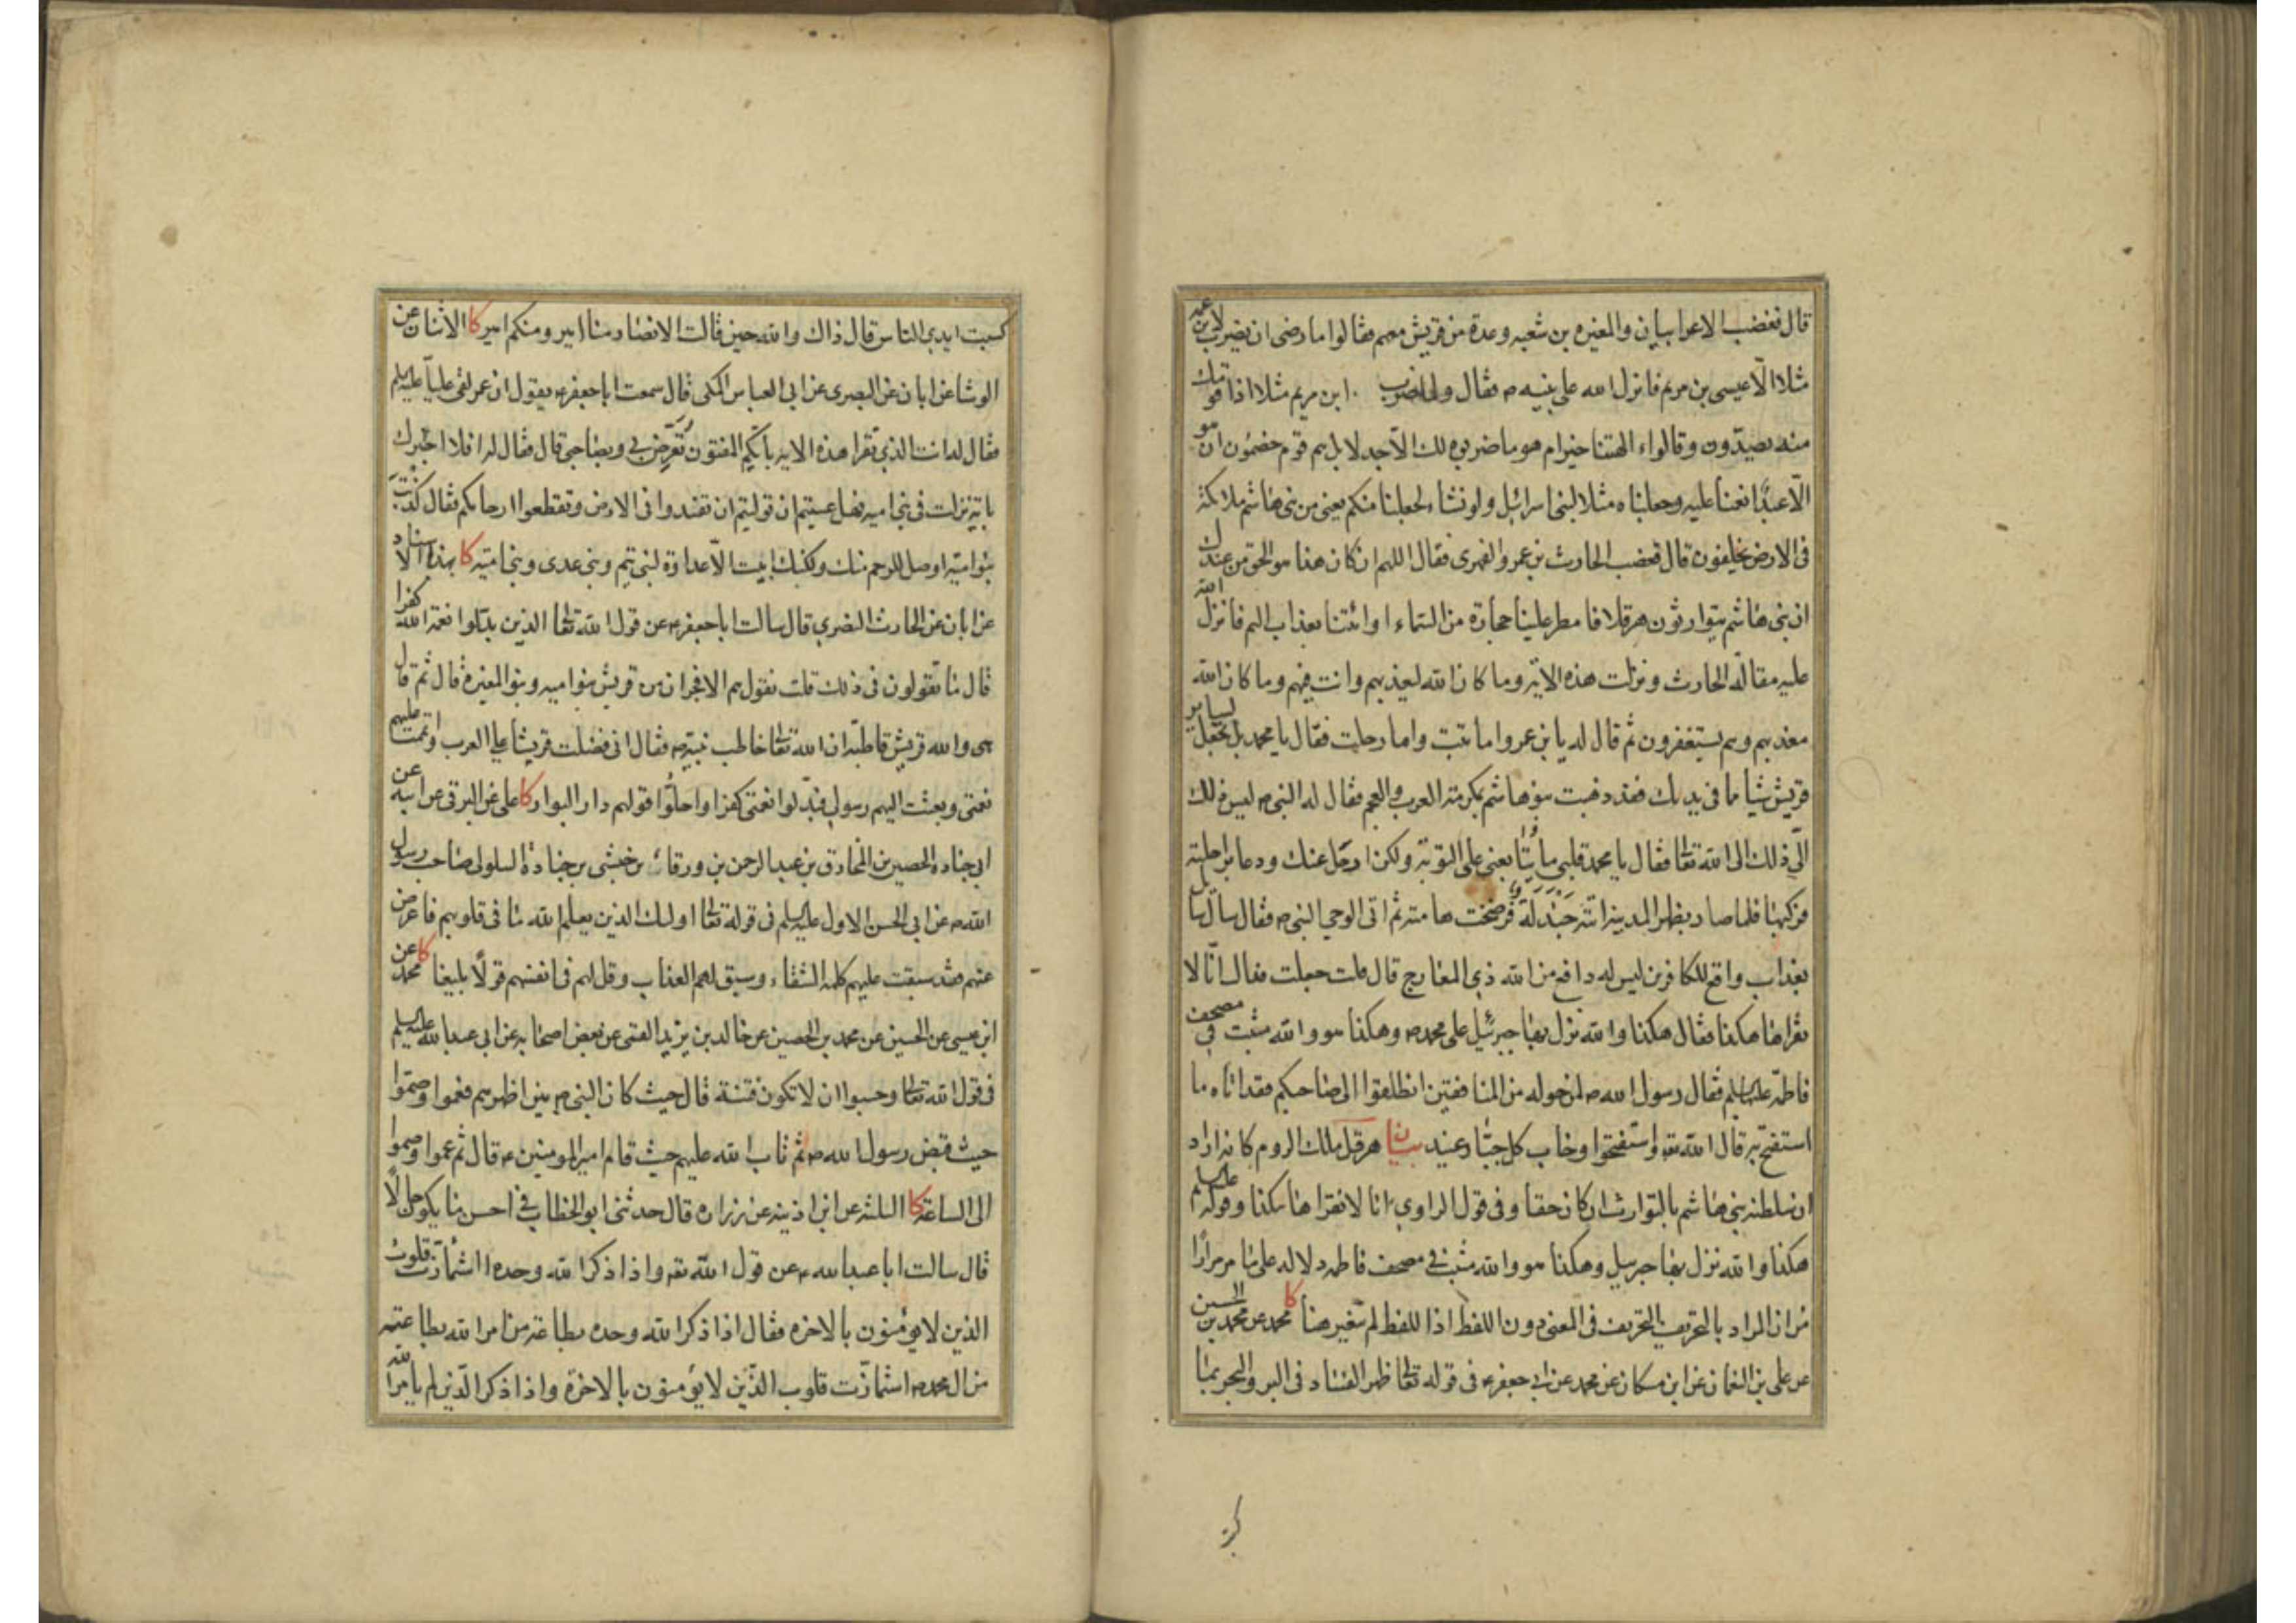 قال فغضب الاعرابيان والمغيره بن شعبه وعدة من قريش معهم فقالوا ما رضى ان يضرب لابن عمه
مثلا الّا عيسى بن مريم فانزل الله على نبيه ص فقال ولما ضرب ابن مريم مثلا اذا قومك
منه يصدّون وقالواء الهتنا خير ام هو ما ضربوه لك الّا جدلا بل هم قوم خصمون ان هو
الّا عبدًا نعمنا عليه وجعلناه مثلا لبنى اسرائيل ولو نشاء لجعلنا منكم يعنى من بنى هاشم ملائكة
فى الارض يخلفون قال فغضب الحارث بن عمرو الفهرى فقال اللهم ان كان هذا هو الحق من عندك
ان بنى هاشم يتوارثون هرقلا فامطر علينا حجارة من السماء او ائتنا بعذاب اليم فانزل الله
عليه مقالة الحارث ونزلت هذه الاية وما كان الله ليعذبهم وانت فيهم وما كان الله
معذبهم وهم يستغفرون ثم قال له يا بن عمرو اما تبت واما رحلت فقال يا محمد بل تجعل لساير
قريش شيا مما فى يديك فقد ذهبت بنو هاشم بمكرمة العرب والعجم فقال له النبى ص ليس ذلك
الّى ذلك الى الله تعالى فقال يا محمد قلبى ما يتابعنى على التوبة ولكن ارحل عنك ودعا براحلته
فركبها فلما صار بظهر المدينة اتته جَنْدَلَة فرضخت هامته ثم اتى الوحى النبى ص فقال سأل سائل
بعذاب واقع للكافرين ليس له دافع من الله ذي المعارج قال قلت جعلت فداك انّا لا
نقراها هكذا فقال هكذا والله نزل بها جبرئيل على محمد ص وهكذا هو والله مثبت فى مصحف
فاطمة عليها السلم فقال رسول الله ص لمن حوله من المنافقين انطلقوا الى صاحبكم فقد اتاه ما
استفتح به قال الله تع واستفتحوا وخاب كل جبّار عنيد بيان هرقل ملك الروم كانه اراد
ان سلطنة بنى هاشم بالتوارث ان كان حقا وفى قول الراوي انا لا نقراها هكذا وقوله عليه السلم
هكذا والله نزل بها جبرئيل وهكذا هو والله مثبت في مصحف فاطمه دلاله على ما مر مرارًا
من ان المراد بالتحريف التحريف فى المعنى دون اللفظ اذا للفظ لم تتغير هنا كا محمد عن محمد بن الحسين
عن على بن النعمان عن ابن مسكان عن محمد عن ابى جعفر ع فى قوله تعالى ظهر الفساد فى البر والبحر بما
كسبت ايدي الناس قال ذاك والله حين قالت الانصار منا امير ومنكم امير كا الاثنان عن
الوشا عن ابان عن البصرى عن ابى العباس المكى قال سمعت ابا جعفر ع يقول ان عمر لقى عليّا عليه السلم
فقال له انت الذي تقرا هذه الاية بايّكم المفتون تُعَرِّض بى وبصاحبى قال فقال له افلا اخبرك
باية نزلت فى بنى اميه فهل عسيتم ان توليتم ان تفسدوا فى الارض وتقطعوا ارحامكم فقال كَذَبْتَ
بنو اميّة اوصل للرحم منك ولكنك ابيت الّا عداوة لبنى تيم وبنى عدى وبنى امية كا بهذا الاسناد
عن ابان عن الحارث النصري قال سالت ابا جعفر ع عن قول الله تعالى الذين بدّلوا نعمة الله كفرا
قال ما تقولون فى ذلك قلت نقول هم الافجران من قريش بنو اميه وبنو المغيرة قال ثم قال
هى والله قريش قاطبة ان الله تعالى خاطب نبيّه ص فقال انى فضلت قريشا على العرب واتممت عليهم
نعمتى وبعثت اليهم رسولى فبدّلوا نعمتى كفرا واحلّوا قومهم دار البوار كا على عن البرقى عن ابيه عن
ابى جناده الحصين بن المخارق بن عبد الرحمن بن ورقاء بن حبشى بن جنادة السلولى صاحب رسول
الله ص عن ابى الحسن الاول عليه السلم فى قوله تعالى اولئك الذين يعلم الله ما فى قلوبهم فاعرض
عنهم فقد سبقت عليهم كلمة الشقاء وسبق لهم العذاب وقل لهم فى انفسهم قولًا بليغا كا محمد عن
ابن عيسى عن الحسين عن محمد بن الحصين عن خالد بن يزيد القمى عن بعض اصحابه عن ابى عبدالله عليه السلم
فى قول الله تعالى وحسبوا ان لا تكون فتنة قال حيث كان النبى ص بين اظهرهم فعموا وصمّوا
حيث قبض رسول الله ص ثم تاب الله عليهم حيث قام امير المومنين ع قال ثم عموا وصموا
الى الساعة كا الثلثة عن ابن اذينه عن زراره قال حدثنى ابو الخطاب فى احسن ما يكون حالًا
قال سالت ابا عبدالله ع عن قول الله تع واذا ذكر الله وحده اشمأزّت قلوب
الذين لا يؤمنون بالاخره فقال اذا ذكر الله وحده بطاعة من امر الله بطاعته
من ال محمد ص اشمازّت قلوب الذّين لا يؤمنون بالاخرة واذا ذكر الذين لم يامر الله